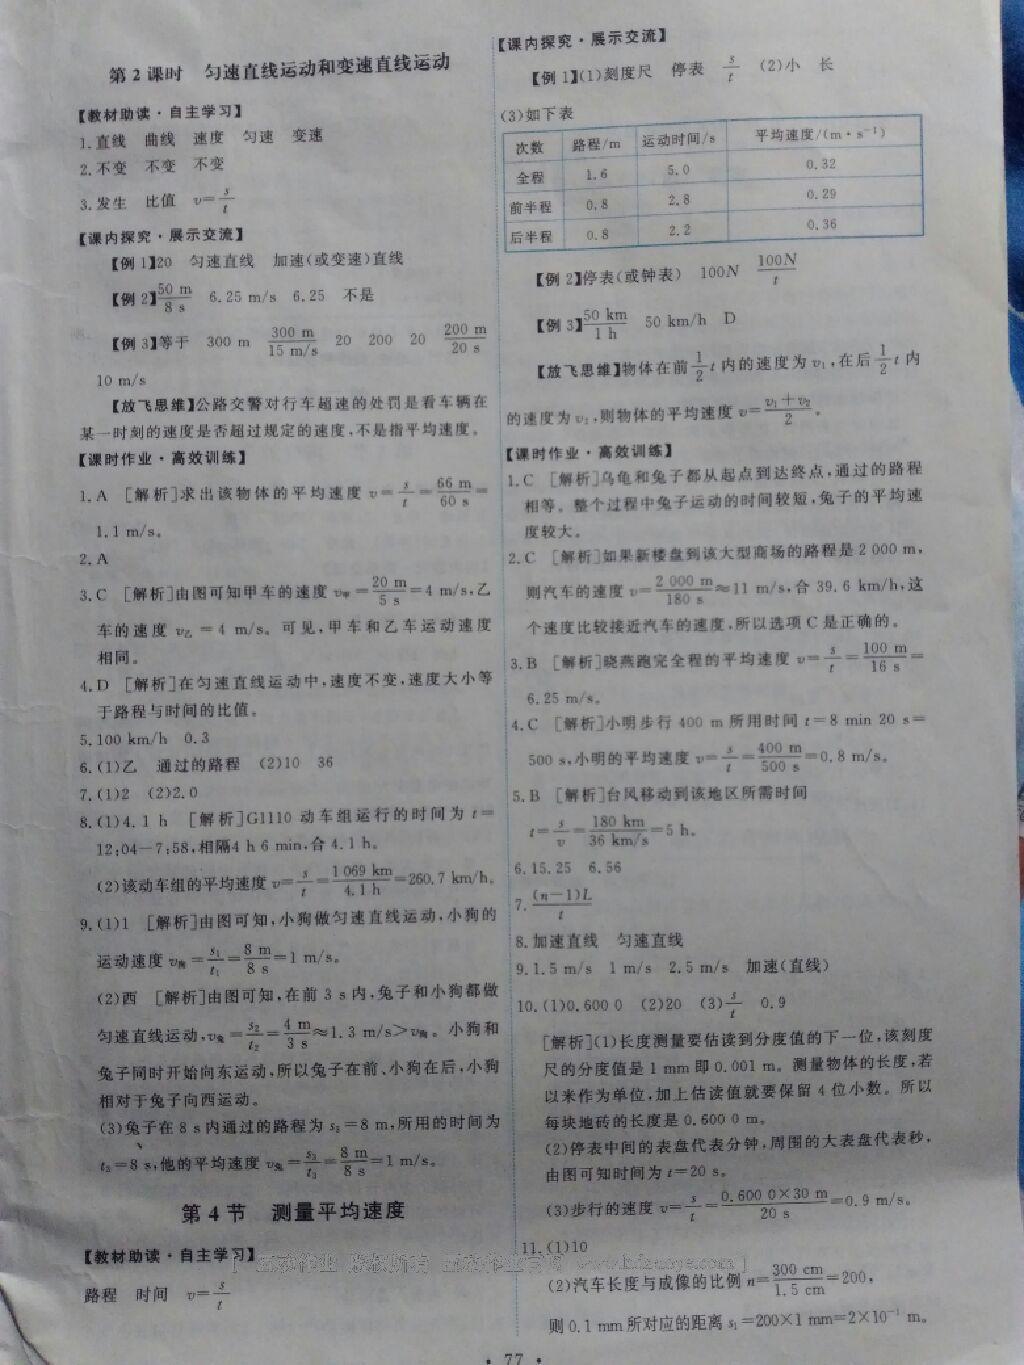 第2课时　匀速直线运动和变速直线运动
【教材助读·自主学习】
1.直线　曲线　速度　匀速　变速
2.不变　不变　不变
3.发生　比值　v=s/t
【课内探究·展示交流】
【例1】20　匀速直线　加速(或变速)直线
【例2】50 m/8 s　6.25 m/s　6.25　不是
【例3】等于　300 m　300 m/15 m/s　20　200　20　200 m/20 s
10 m/s
【放飞思维】公路交警对行车超速的处罚是看车辆在
某一时刻的速度是否超过规定的速度,不是指平均速度。
【课时作业·高效训练】
1.A　[解析]求出该物体的平均速度 v=s/t=66 m/60 s=
1.1 m/s。
2.A
3.C　[解析]由图可知甲车的速度 v甲=20 m/5 s=4 m/s,乙
车的速度 v乙=4 m/s。可见,甲车和乙车运动速度
相同。
4.D　[解析]在匀速直线运动中,速度不变,速度大小等
于路程与时间的比值。
5.100 km/h　0.3
6.(1)乙　通过的路程　(2)10　36
7.(1)2　(2)2.0
8.(1)4.1 h　[解析]G1110 动车组运行的时间为 t=
12:04-7:58,相隔4 h 6 min,合 4.1 h。
(2)该动车组的平均速度 v=s/t=1 069 km/4.1 h=260.7 km/h。
9.(1)1　[解析]由图可知,小狗做匀速直线运动,小狗的
运动速度 v狗=s₁/t₁=8 m/8 s=1 m/s。
(2)西　[解析]由图可知,在前 3 s 内,兔子和小狗都做
匀速直线运动,v兔=s₂/t₂=4 m/3 s≈1.3 m/s>v狗。小狗和
兔子同时开始向东运动,所以兔子在前、小狗在后,小狗
相对于兔子向西运动。
(3)兔子在 8 s 内通过的路程为 s₃=8 m,所用的时间为
t₃=8 s,他的平均速度 v兔=s₃/t₃=8 m/8 s=1 m/s。
第4节　测量平均速度
【教材助读·自主学习】
路程　时间　v=s/t
【课内探究·展示交流】
【例1】(1)刻度尺　停表　s/t　(2)小　长
(3)如下表
次数　路程/m　运动时间/s　平均速度/(m·s⁻¹)
全程　1.6　5.0　0.32
前半程　0.8　2.8　0.29
后半程　0.8　2.2　0.36
【例2】停表(或钟表)　100N　100N/t
【例3】50 km/1 h　50 km/h　D
【放飞思维】物体在前1/2 t 内的速度为 v₁,在后1/2 t 内
的速度为 v₂,则物体的平均速度 v=v₁+v₂/2。
【课时作业·高效训练】
1.C　[解析]乌龟和兔子都从起点到达终点,通过的路程
相等。整个过程中兔子运动的时间较短,兔子的平均速
度较大。
2.C　[解析]如果新楼盘到该大型商场的路程是 2 000 m,
则汽车的速度 v=2 000 m/180 s≈11 m/s,合 39.6 km/h,这
个速度比较接近汽车的速度,所以选项 C 是正确的。
3.B　[解析]晓燕跑完全程的平均速度 v=s/t=100 m/16 s=
6.25 m/s。
4.C　[解析]小明步行 400 m 所用时间 t=8 min 20 s=
500 s,小明的平均速度 v=s/t=400 m/500 s=0.8 m/s。
5.B　[解析]台风移动到该地区所需时间
t=s/v=180 km/36 km/s=5 h。
6.15.25　6.56
7.(n-1)L/t
8.加速直线　匀速直线
9.1.5 m/s　1 m/s　2.5 m/s　加速(直线)
10.(1)0.600 0　(2)20　(3)s/t　0.9
[解析](1)长度测量要估读到分度值的下一位,该刻度
尺的分度值是 1 mm 即 0.001 m。测量物体的长度,若
以米作为单位,加上估读值就要保留 4 位小数。所以
每块地砖的长度是 0.600 0 m。
(2)停表中间的表盘代表分钟,周围的大表盘代表秒,
由图可知时间为 t=20 s。
(3)步行的速度 v=s/t=0.600 0×30 m/20 s=0.9 m/s。
11.(1)10
(2)汽车长度与成像的比例 n=300 cm/1.5 cm=200,
则 0.1 mm 所对应的距离 s₁=200×1 mm=2×10⁻¹ m。
· 77 ·